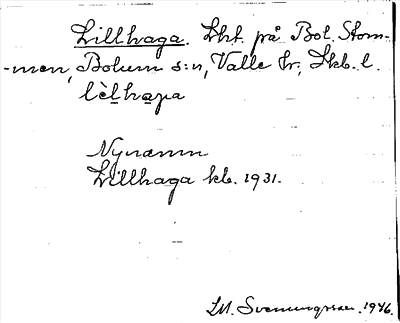 Lillhaga. Lht. på Bol. Stom-
-men, Bolum s:n, Valle hr, Skb. l.
lèlhaga
Nynamn
Lillhaga kb. 1931.
I.M. Svenungsson. 1946.